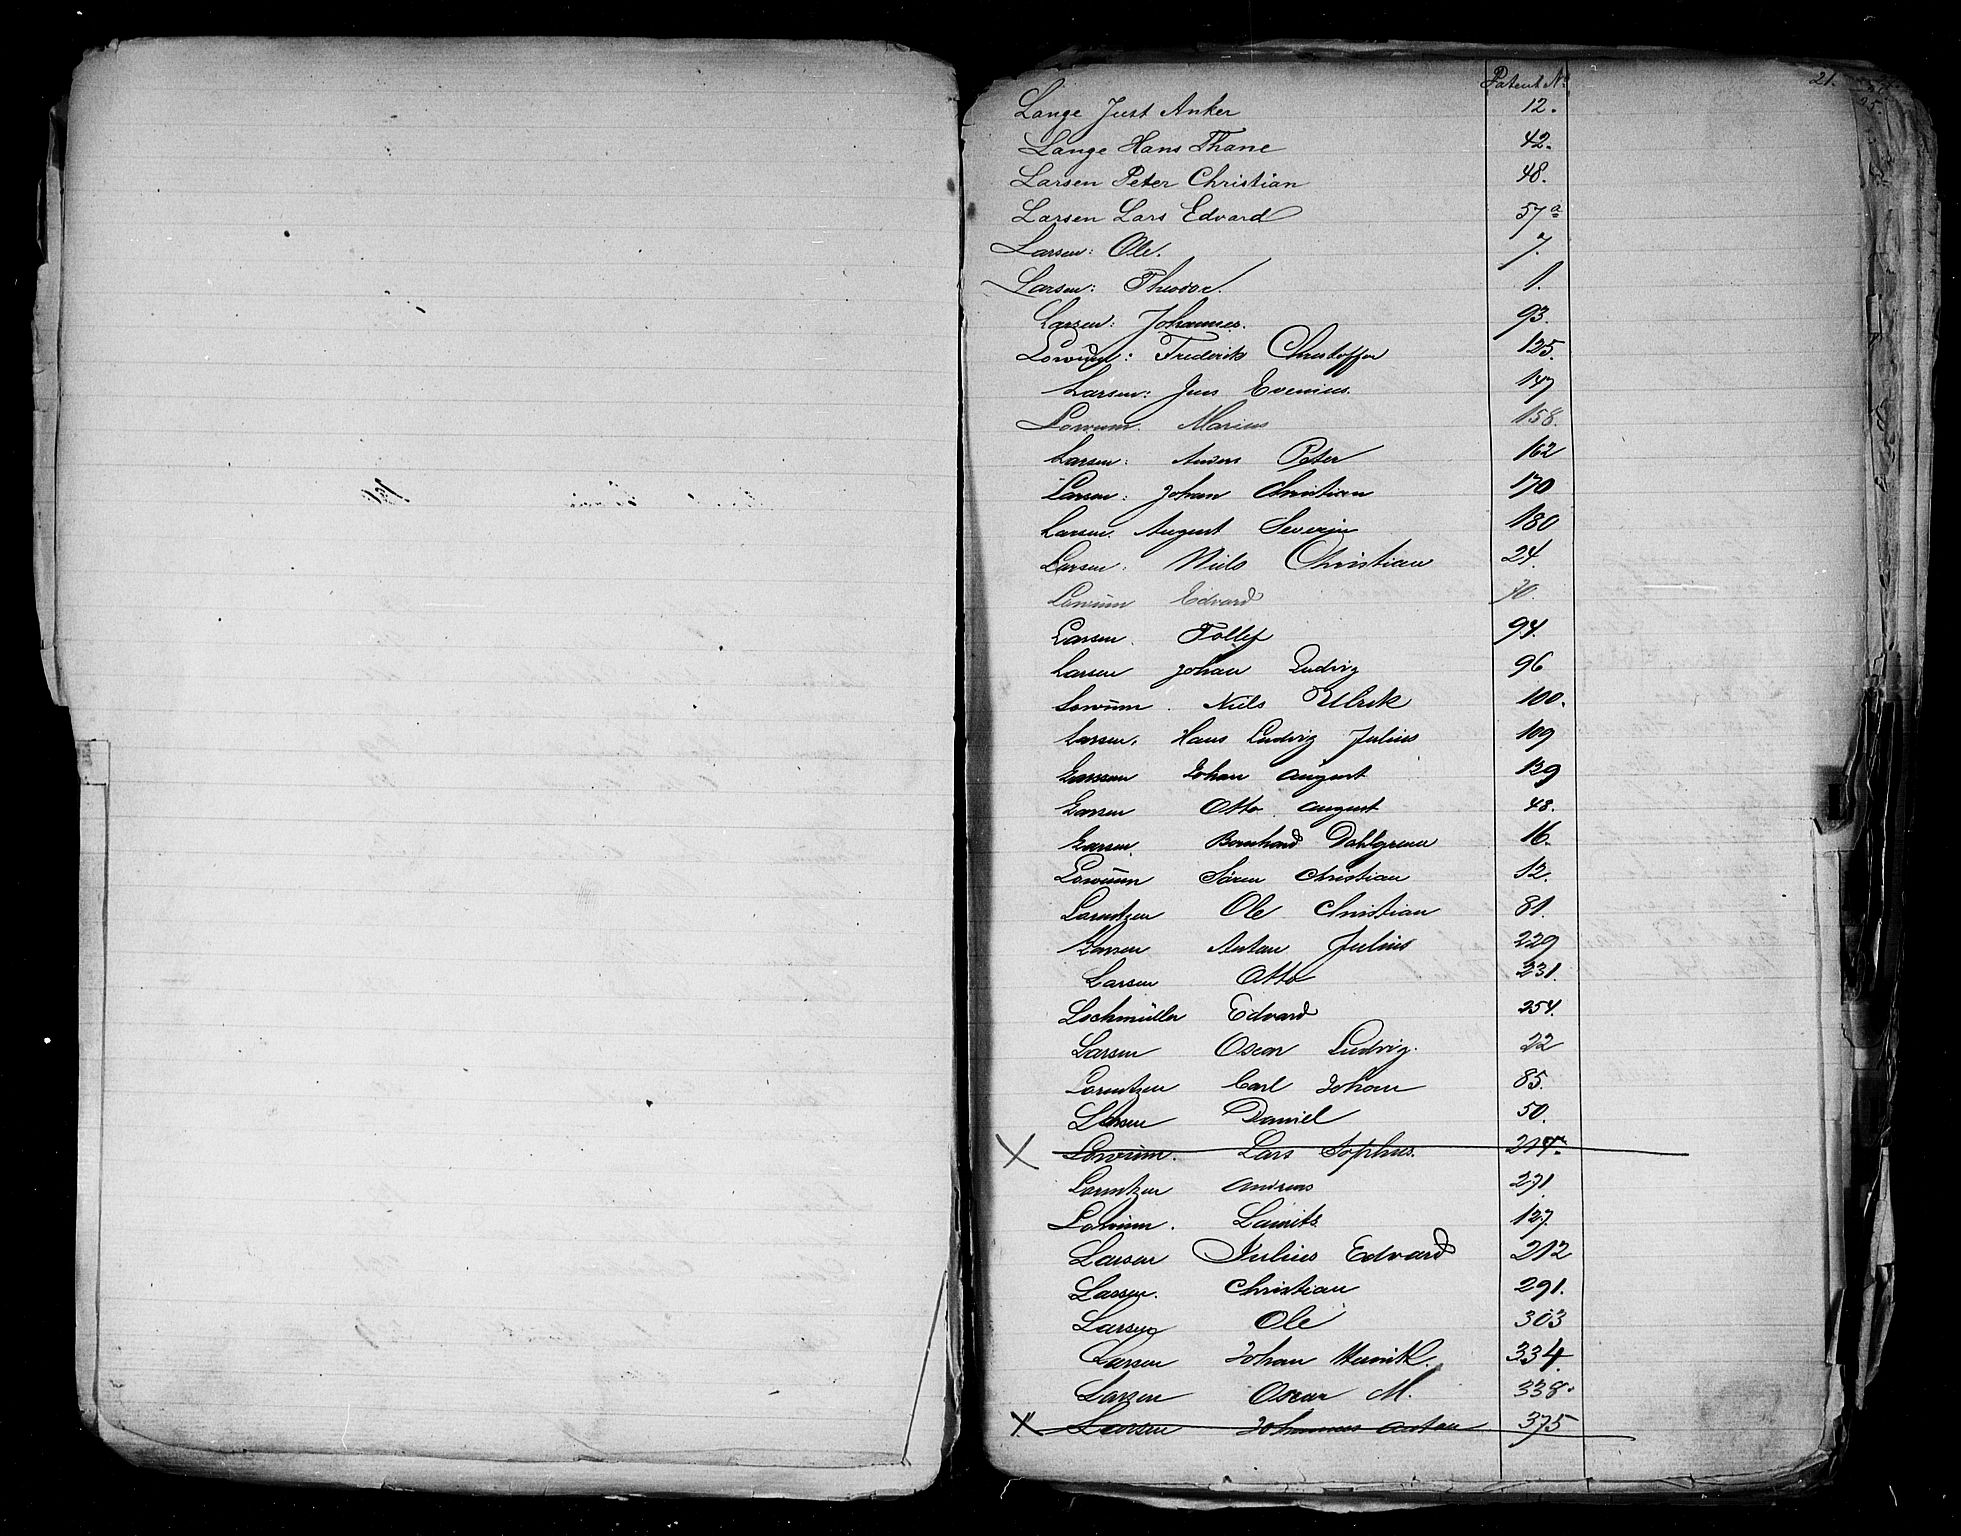 Patent No 21.
Lange Just Anker 12.
Lange Hans Thane 42.
Larsen Peter Christian 48.
Larsen Lars Edvard 57a
Larsen: Ole. 7.
Larsen: Theodor. 1.
Larsen: Johannes. 93.
Lowum: Frederik Christoffer 125.
Larsen: Jens Evenius. 147
Lowum. Marius 158.
Larsen: Anders Peter 162
Larsen: Johan Christian 170
Larsen. August Severin 180
Larsen: Niels Christian 24.
Lowum Edvard 70.
Larsen. Tollef 94.
Larsen Johan Ludvig 96
Lowum. Niels Ulrik 100.
Larsen. Hans Ludvig Julius 109
Larsen Johan August 139
Larsen Otto August 48.
Larsen. Bernhard Dahlgreen 16.
Lowum Søren Christian 12.
Larentzen Ole Christian 81.
Larsen Anton Julius 229
Larsen Otto 231.
Lochmüller Edvard 254.
Larsen Oscar Ludvig. 22
Lorentzen Carl Johan 85.
Larsen Daniel 50.
X Lowum. Lars Sophus.
Lorentzen Andreas 271
Lowum. Laurits 127.
Larsen Julius Edvard 212
Larsen. Christian 291.
Larsen Ole 303
Larsen Johan Henrik. 334.
Larsen Oscar M. 338.
X Larsen Johannes Anton 375